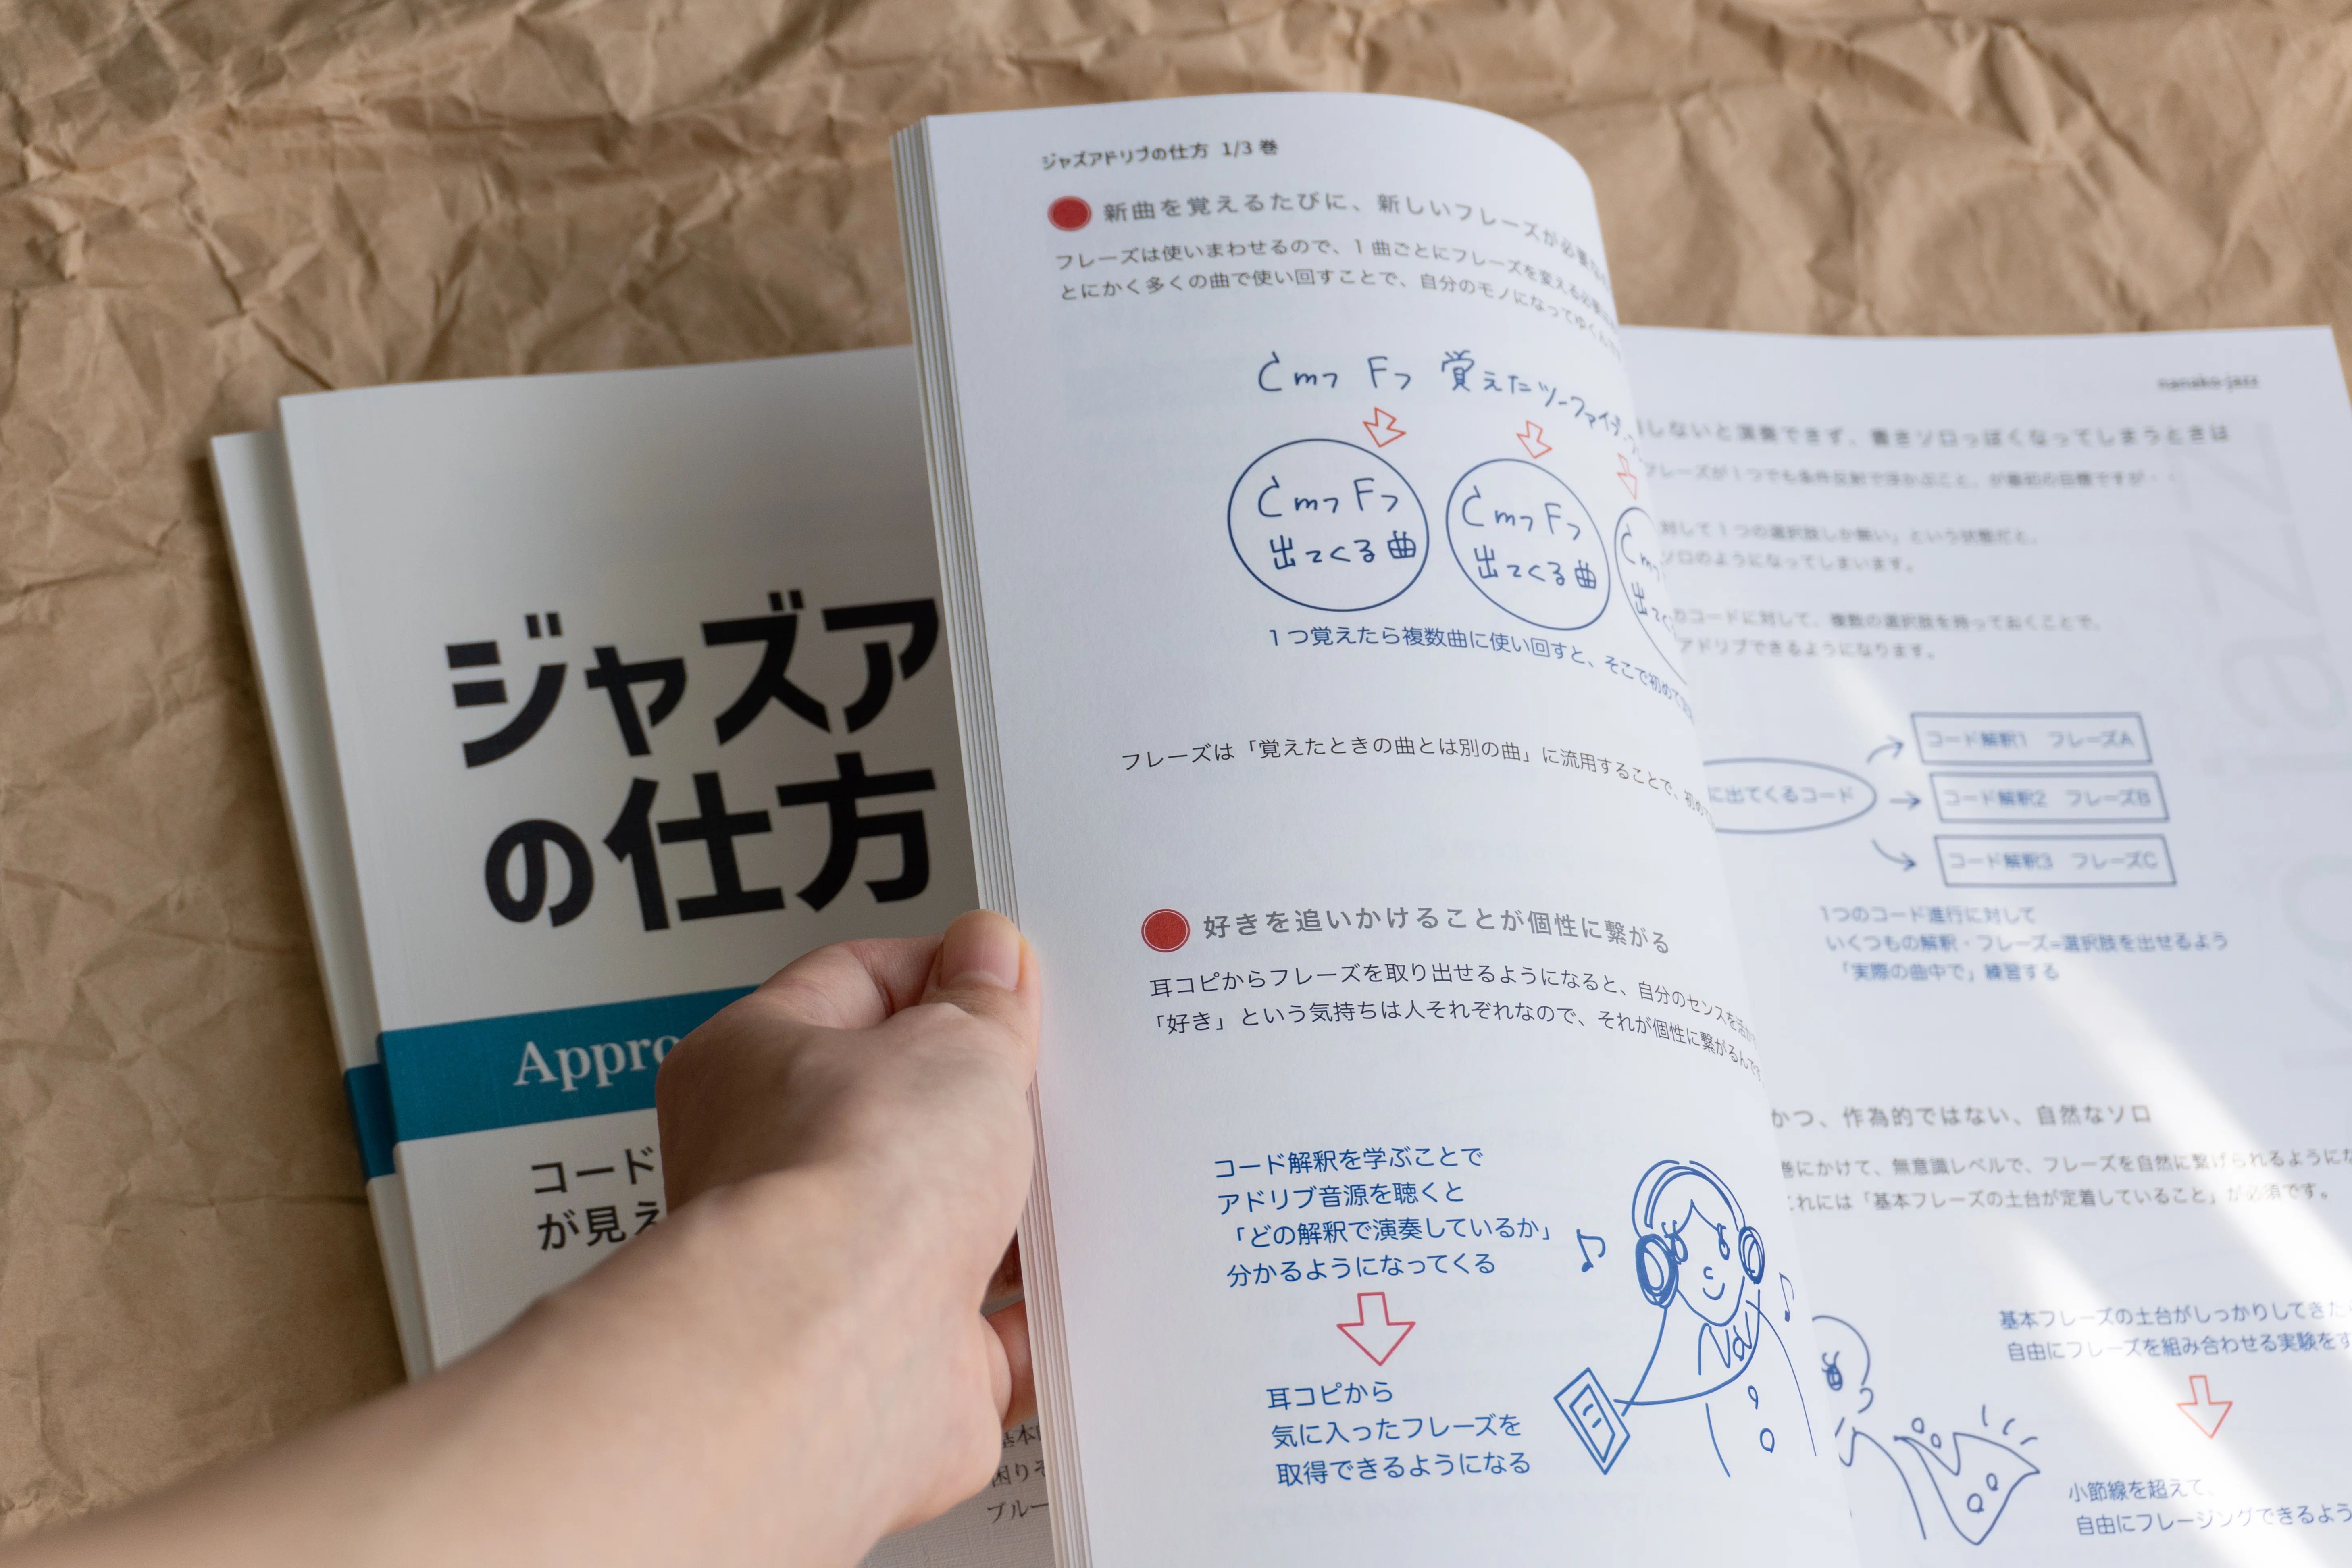 ジャズア
の仕方
Appro
コード
が見え
ジャズアドリブの仕方 1/3 巻
新曲を覚えるたびに、新しいフレーズが必要な
フレーズは使いまわせるので、1 曲ごとにフレーズを変える必要は
とにかく多くの曲で使い回すことで、自分のモノになってゆくん
Cm7 F7 覚えたツーファイブ
Cm7 F7
出てくる曲
Cm7 F7
出てくる曲
Cm
出て
1つ覚えたら複数曲に使い回すと、そこで初めて
フレーズは「覚えたときの曲とは別の曲」に流用することで、初め
好きを追いかけることが個性に繋がる
耳コピからフレーズを取り出せるようになると、自分のセンスを活
「好き」という気持ちは人それぞれなので、それが個性に繋がるんです
コード解釈を学ぶことで
アドリブ音源を聴くと
「どの解釈で演奏しているか」
分かるようになってくる
耳コピから
気に入ったフレーズを
取得できるようになる
基本
困りそ
ブルー
nanako-jazz
しないと演奏できず、書きソロっぽくなってしまうときは
フレーズが1つでも条件反射で浮かぶこと、が最初の目標ですが・・
対して1つの選択肢しか無い」という状態だと、
ソロのようになってしまいます。
のコードに対して、複数の選択肢を持っておくことで、
アドリブできるようになります。
に出てくるコード
コード解釈1 フレーズA
コード解釈2 フレーズB
コード解釈3 フレーズC
1つのコード進行に対して
いくつもの解釈・フレーズ=選択肢を出せるよう
「実際の曲中で」練習する
かつ、作為的ではない、自然なソロ
巻にかけて、無意識レベルで、フレーズを自然に繋げられるようにな
これには「基本フレーズの土台が定着していること」が必須です。
基本フレーズの土台がしっかりしてきた
自由にフレーズを組み合わせる実験をす
小節線を超えて、
自由にフレージングできるよう